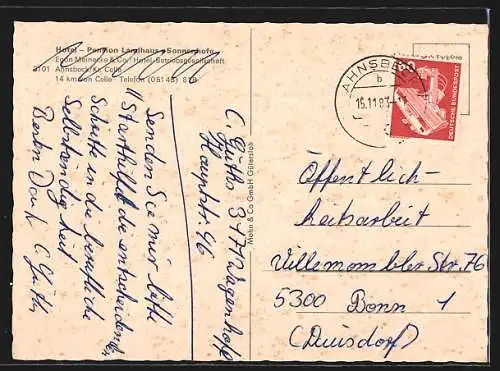 Hotel – Pension Landhaus „Sonnenhof“
Egon Meinecke & Co. Hotel-Betriebsgesellschaft
3101 Ahnsbeck/Kr. Celle
14 km von Celle · Telefon (05145) 8
Senden Sie mir bitte
"Starthilfe" die entscheidenden
Schritte in die berufliche
Selbständigkeit
Besten Dank C. Güths
C. Güths 3471 Wagenhoff
Hauptstr. 46
Mohn & Co GmbH Gütersloh
AHNSBECK
b
15.11.83
60
DEUTSCHE BUNDESPOST
Öffentlich-
keitsarbeit
Villemombler Str. 76
5300 Bonn 1
(Duisdorf)